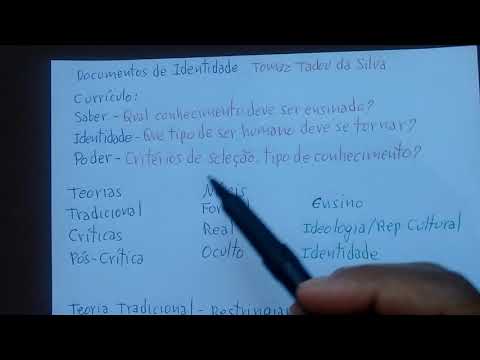 Documentos de Identidade Tomaz Tadeu da Silva
Currículo:
Saber - Qual conhecimento deve ser ensinado?
Identidade - Que tipo de ser humano deve se tornar?
Poder - Critérios de seleção, tipo de conhecimento?
Teorias
Tradicional Ensino
Críticas Real Ideologia/Rep Cultural
Pós-Crítica Oculto Identidade
Teoria Tradicional -